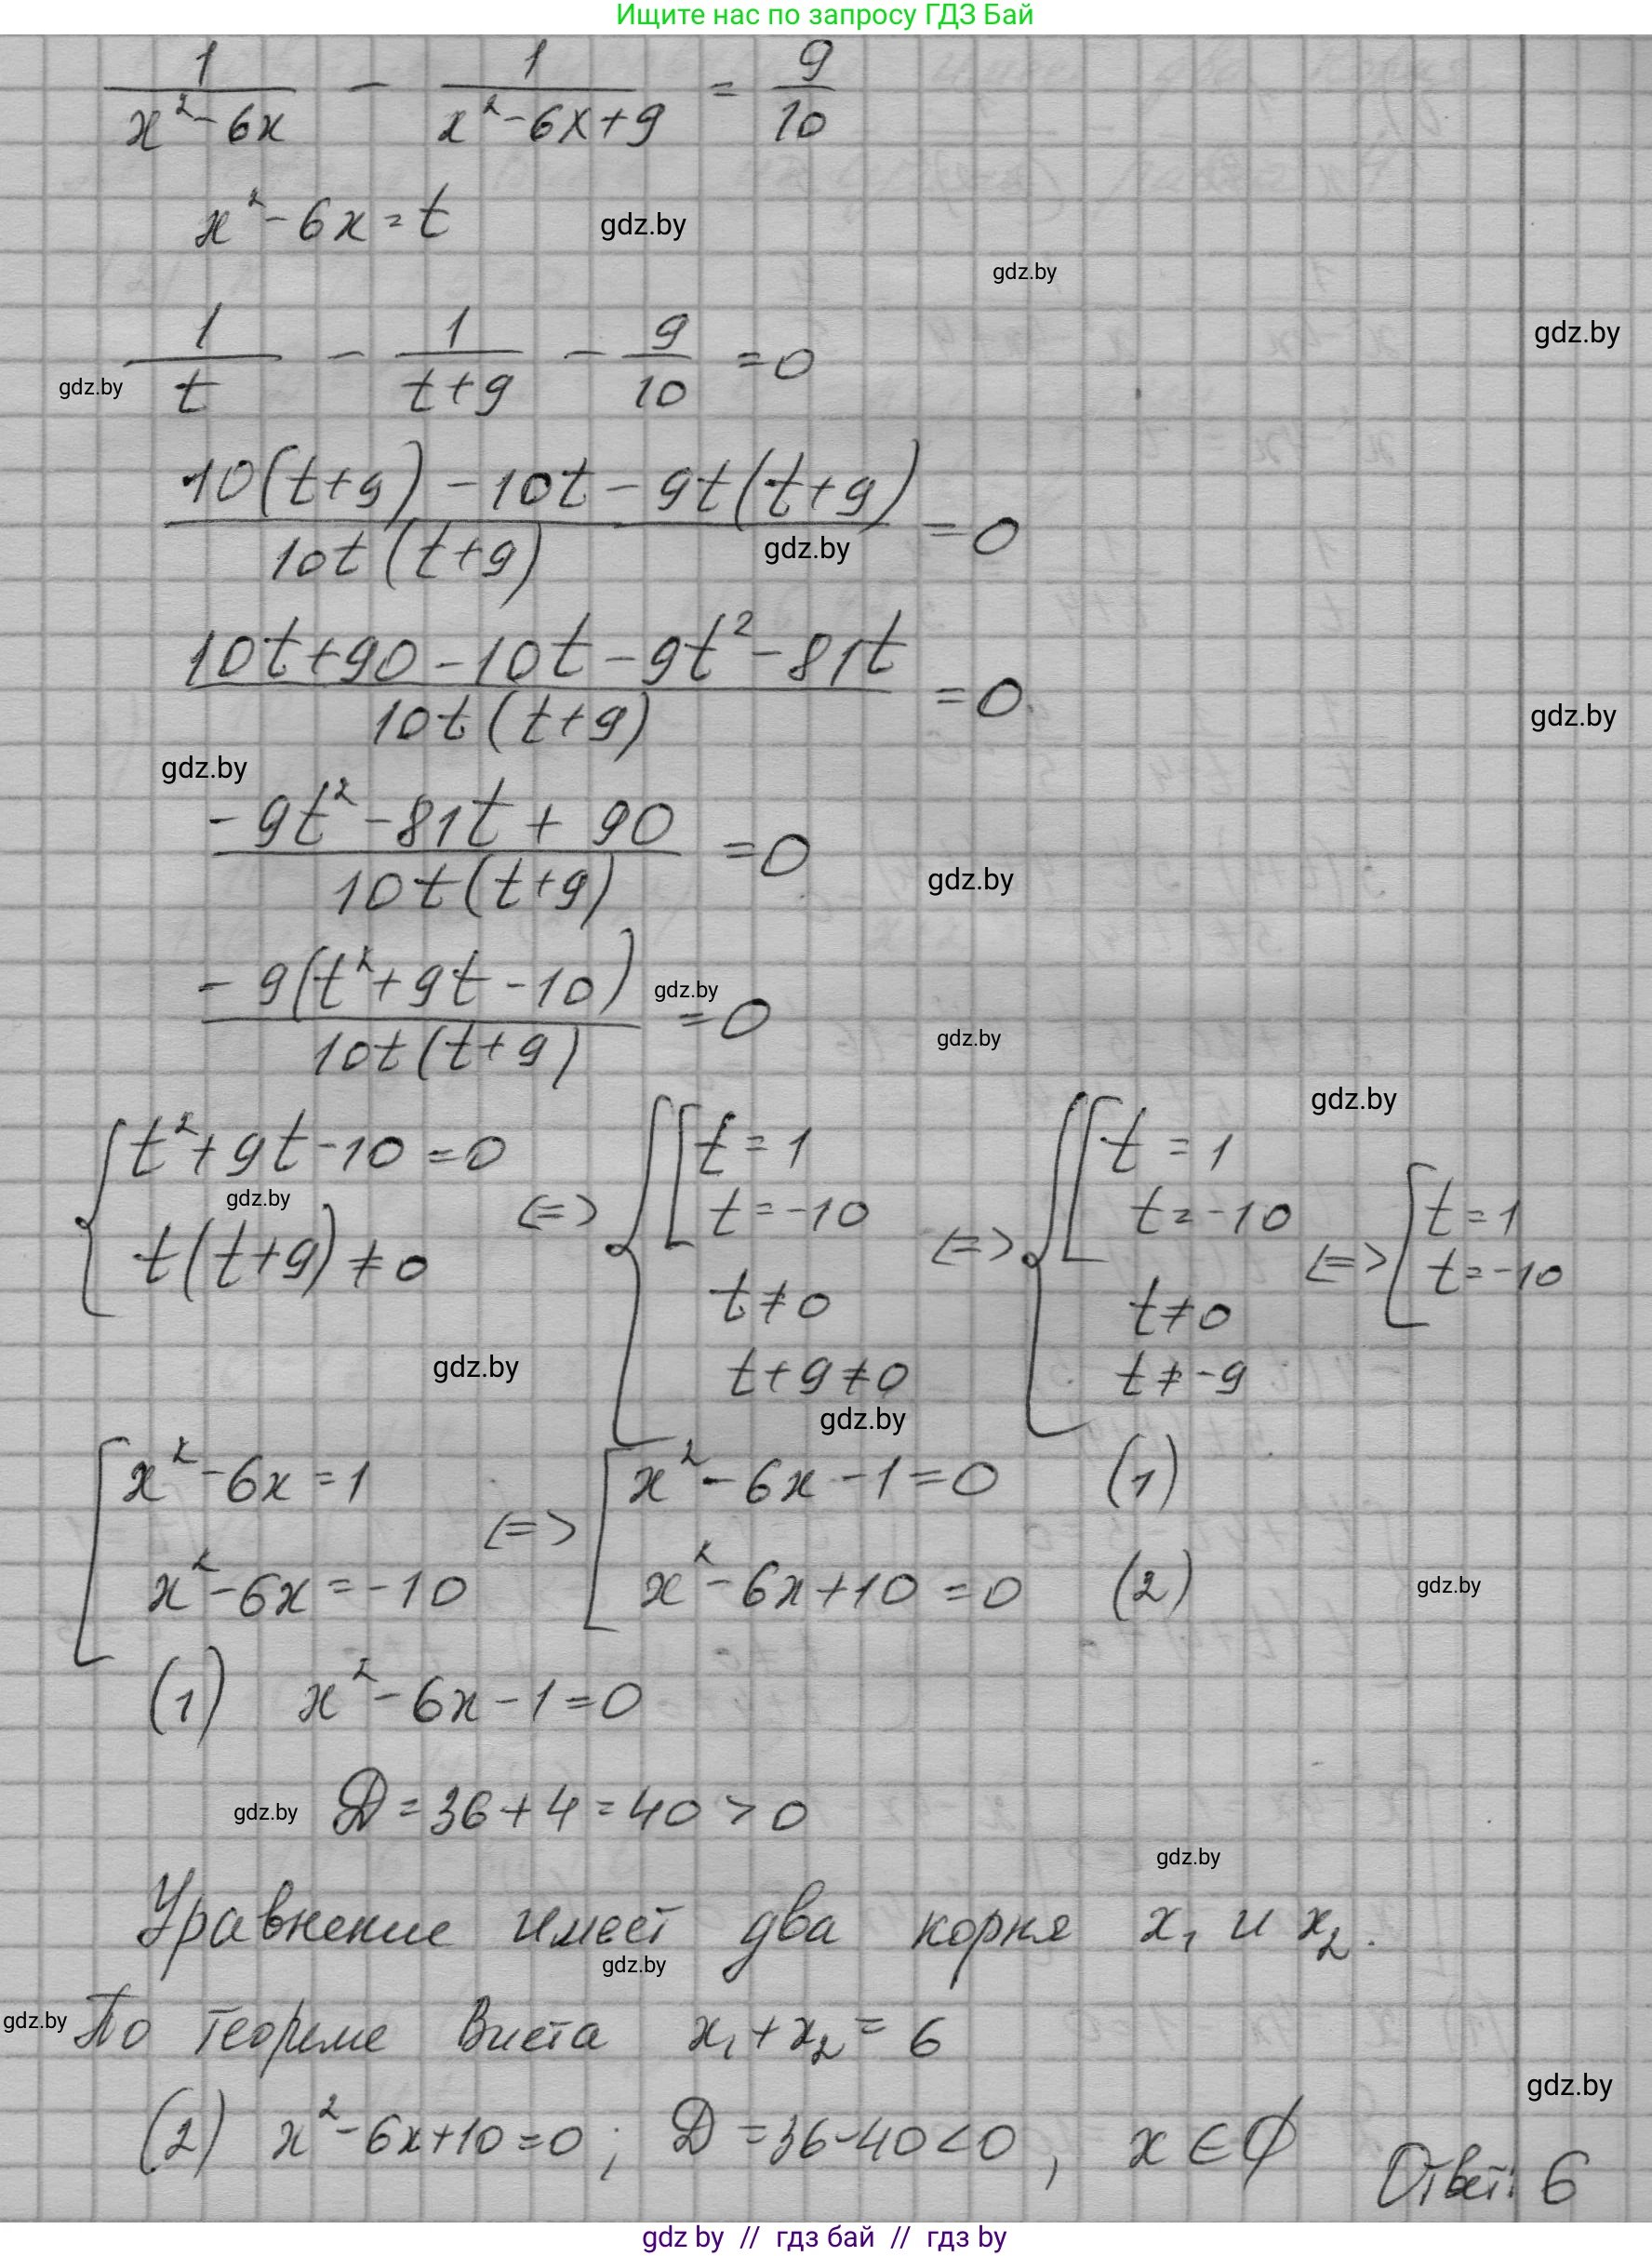 Ищите нас по запросу ГДЗ Бай
1/(x²-6x) - 1/(x²-6x+9) = 9/10
x²-6x=t gdz.by
gdz.by
gdz.by
1/t - 1/(t+9) - 9/10 = 0
gdz.by
(10(t+9)-10t-9t(t+9))/(10t(t+9)) = 0
gdz.by
(10t+90-10t-9t²-81t)/(10t(t+9)) = 0
gdz.by
gdz.by
(-9t²-81t+90)/(10t(t+9)) = 0
gdz.by
(-9(t²+9t-10))/(10t(t+9)) = 0
gdz.by
gdz.by
gdz.by
{ t²+9t-10=0 t(t+9)≠0 <=> { [ t=1 t=-10 t≠0 t+9≠0 <=> { [ t=1 t=-10 t≠0 t≠-9 <=> [ t=1 t=-10
gdz.by
gdz.by
gdz.by
[ x²-6x=1 x²-6x=-10 <=> [ x²-6x-1=0 (1) x²-6x+10=0 (2)
gdz.by
(1) x²-6x-1=0
gdz.by D=36+4=40>0
gdz.by
Уравнение имеет два корня x₁ и x₂.
gdz.by
gdz.by По теореме Виета x₁+x₂=6
gdz.by
(2) x²-6x+10=0; D=36-40<0, x∈∅
Ответ: 6
gdz by // гдз бай // гдз by